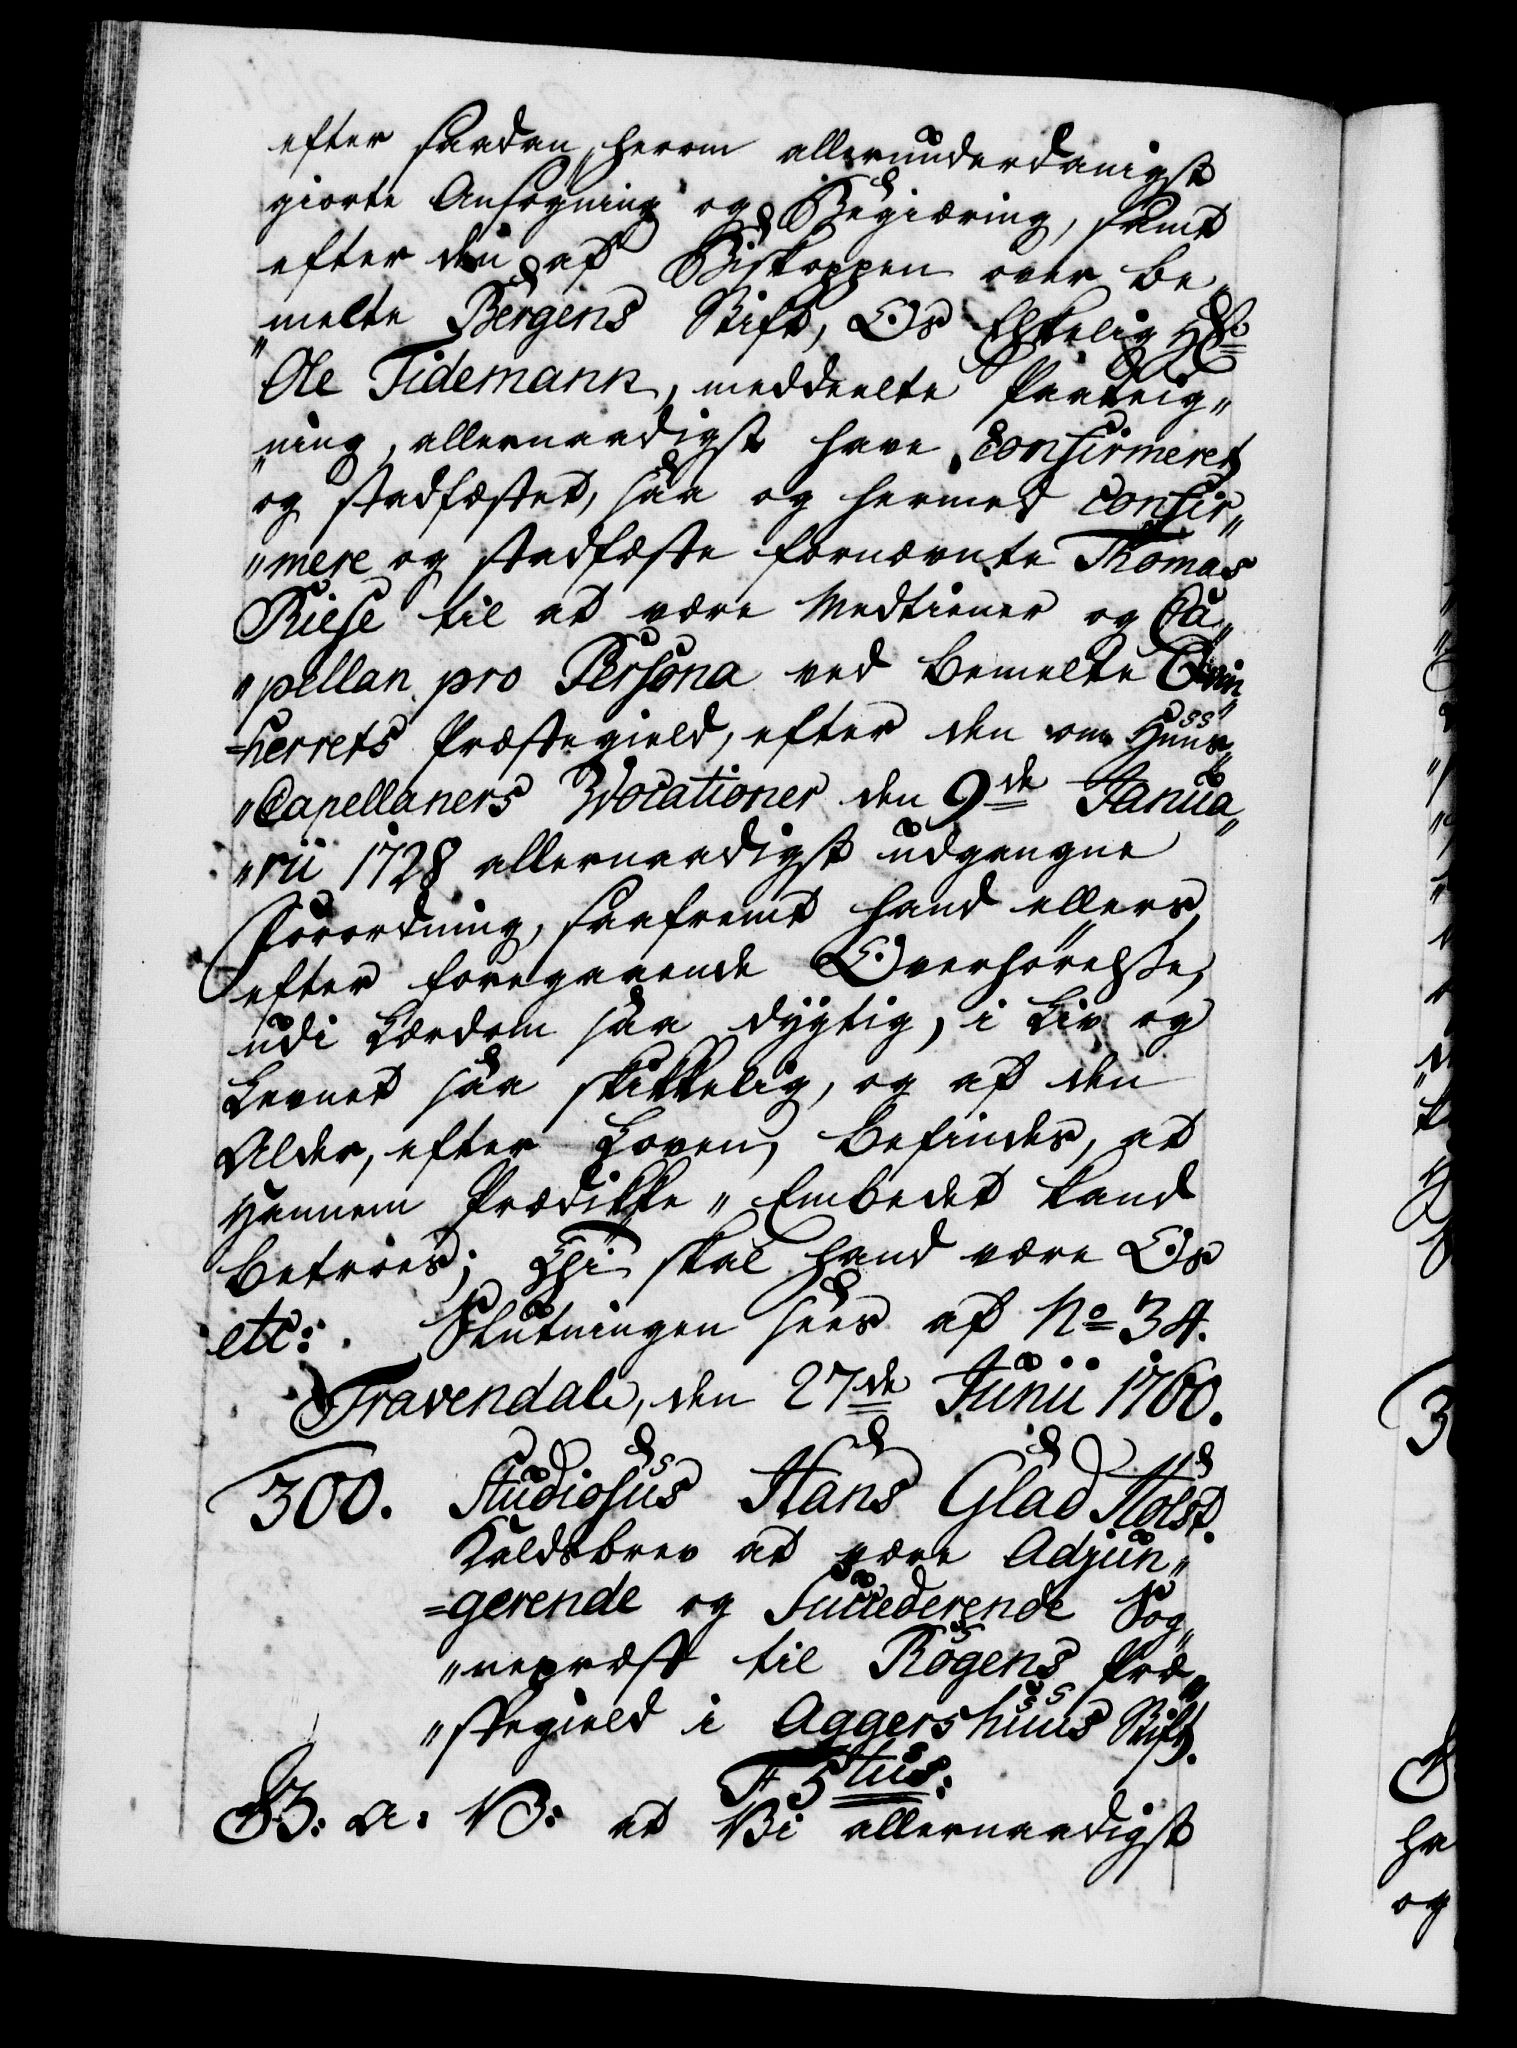 efter saadan herom allerunderdanigst
giorte Ansøgning og Begiæring, samt
efter den af Biskoppen over be„
„melte Bergens Stift, Os Elskelig Hr.
Ole Tidemann, meddeelte Paateig„
„ning, allernaadigst have confirmeret
og stadfæstet, saa og hermed confir„
„mere og stadfæste fornævnte Thomas
Riese til at være Medtiener og Ca„
„pellan pro Persona ved bemelte Qvin„
=herrets Præstegield, efter den om Huus„
„Capellaners Vocationer den 9de Janua„
„rii 1728 allernaadigst udgangne
Forordning, saafremt hand ellers,
efter foregaaende Overhørelsse,
udi Lærdom saa dygtig, i Liv og
Levnet saa skikkelig, og af den
Alder, efter Loven, befindes, at
hannem Prædikke„Embedet kand
betroes; Thi skal hand være Os
etc: Slutningen sees af No 34.
Travendahl, den 27de Junii 1760.
300. Studiosus Hans Glad Holst.
Kaldsbrev at være Adjun„
=gerende og Succederende Sog„
„nepræst til Rögens Præ„
„stegield i Aggershuus Stift.
F 5tus:
G: A: V: at Vi allernaadigst